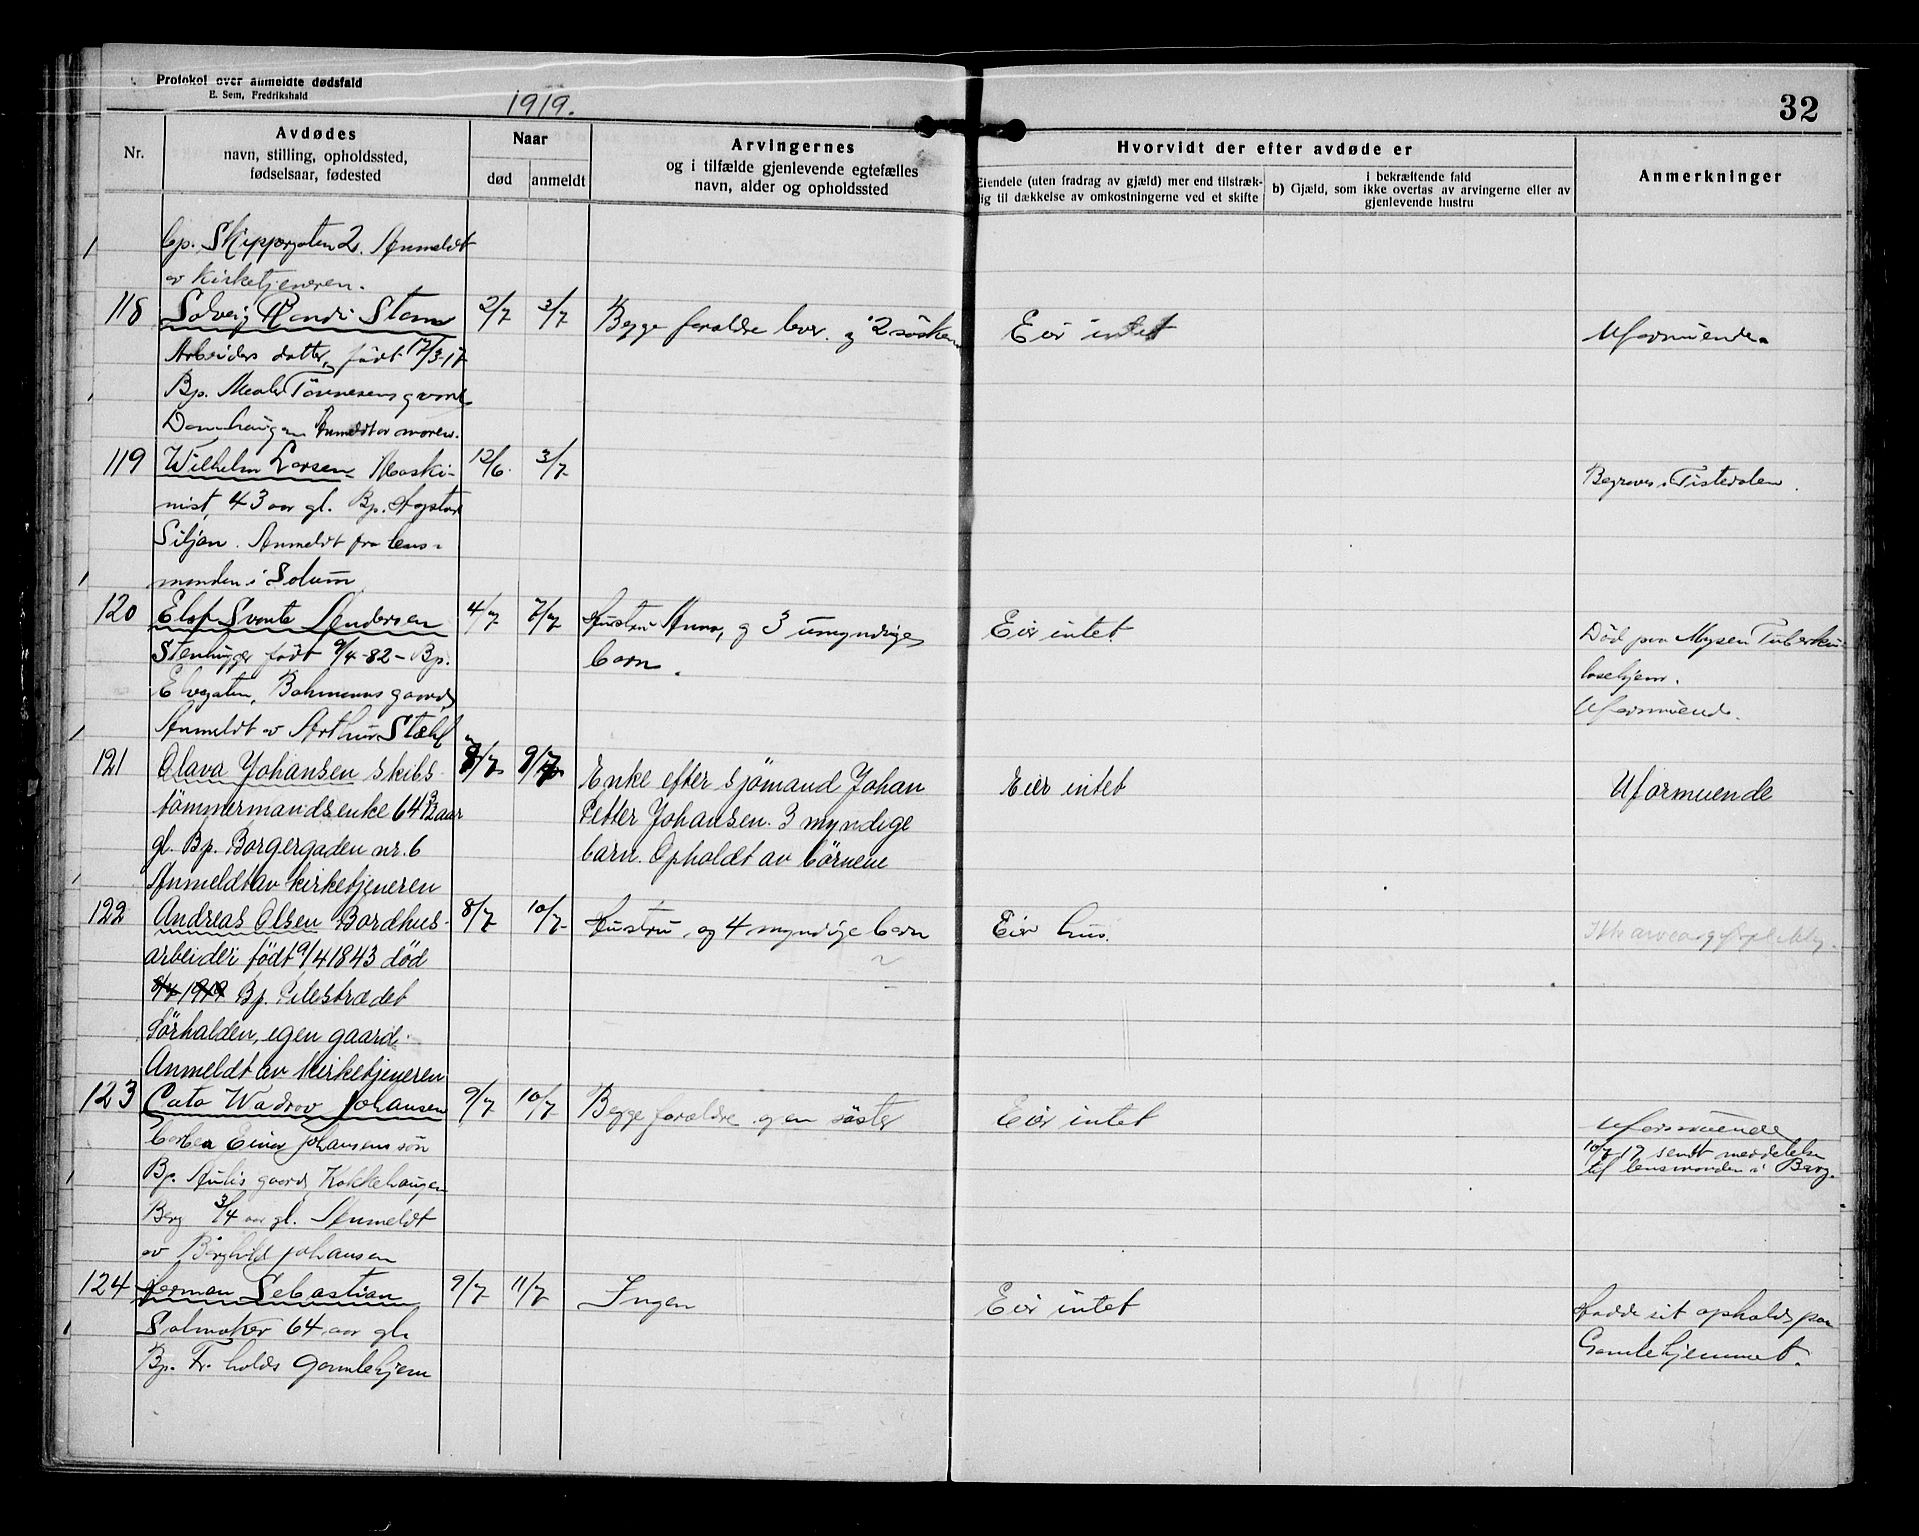 Protokol over anmeldte dødsfald
E. Sem, Fredrikshald
1919.
32
Nr.
Avdødes
navn, stilling, opholdssted,
fødselsaar, fødested
Naar
død
anmeldt
Arvingernes
og i tilfælde gjenlevende egtefælles
navn, alder og opholdssted
Hvorvidt der efter avdøde er
Eiendele (uten fradrag av gjæld) mer end tilstræk-
lig til dækkelse av omkostningerne ved et skifte
i bekræftende fald
b) Gjæld, som ikke overtas av arvingerne eller av
gjenlevende hustru
Anmerkninger
Bp. Skippergaten 2. Anmeldt
av kirketjeneren.
118 Solveig Randi Stom 2/7 3/7 Begge forældre lever og 2 søsken Eier intet Uformuende
Arbeiders datter, født 17/3-17
Bp. Tønnesens gaard
Damhaugen Anmeldt av moren.
119 Wilhelm Larsen Maski- 12/6. 3/7 Begraves i Tistedalen.
nist, 43 aar gl. Bp.
Siljan. Anmeldt fra lens-
manden i Solum
120 Elof Svante Andersen 4/7 7/7 Hustru Anna, og 3 umyndige Eier intet Død paa Mysen Tuberku-
Stenhugger født 9/4-82 - Bp. barn. losehjem.
Elvegaten, Bohmanns gaard, Uformuende.
Anmeldt av Arthur Stæhl
121 Olava Johansen skibs- 8/7 9/7 Enke efter sjømand Johan Eier intet Uformuende
tømmermandsenke 64 3/12 aar Petter Johansen. 3 myndige
gl. Bp. Borgergaden nr. 6 barn. Opholdt av børnene
Anmeldt av kirketjeneren
122 Andreas Olsen Bordhus- 8/7 10/7 Hustru og 4 myndige barn Eier hus.
arbeider født 9/4 1843 død
8/7 1919 Bp. Pilestrædet
Sørhalden, egen gaard.
Anmeldt av kirketjeneren
123 Cato Wadrov Johansen 9/7 10/7 Begge forældre og en søster Eier intet Uformuende
Einar Johansens søn 10/7 19 sendt meddelelse
Bp. Aulis gaard Kokkehaugen til lensmanden i Berg.
Berg 3/4 aar gl. Anmeldt
av Borghild Johansen
124 Herman Sebastian 9/7 11/7 Ingen Eier intet Hadde sit ophold paa
Salmaker 64 aar gl. Gamlehjemmet.
Bp. Fr.holds Gamlehjem